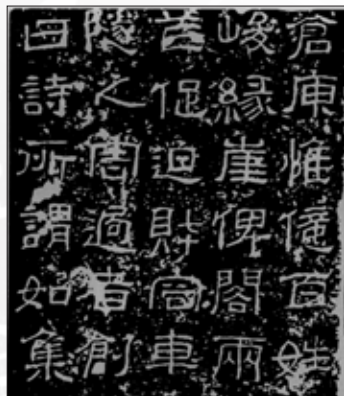 倉庾惟億百姓
峻緣崖俾閣兩
苲促迫財容車
隧之害過者創
曰詩所謂如集